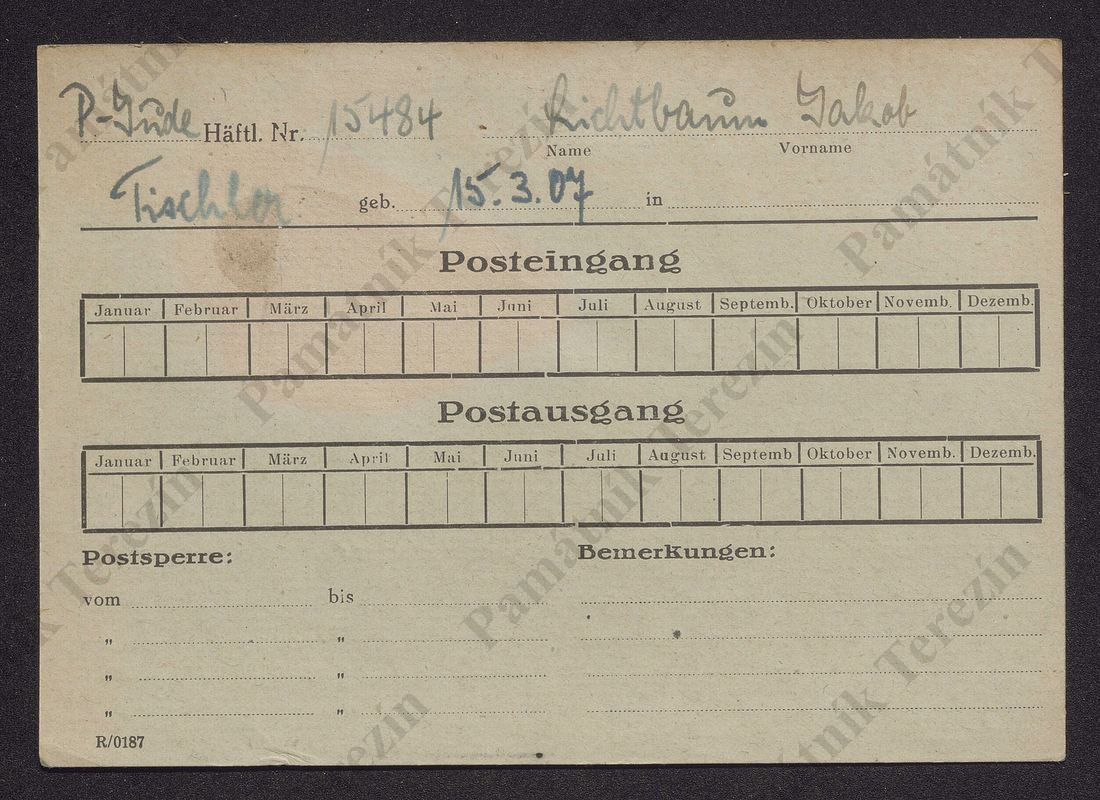 P-Jude Häftl. Nr. 15484 Lichtbaum Jakob
Name Vorname
Tischler geb. 15. 3. 07 in
Posteingang
Januar Februar März April Mai Juni Juli August Septemb. Oktober Novemb. Dezemb.
Postausgang
Januar Februar März April Mai Juni Juli August Septemb Oktober Novemb. Dezemb.
Postsperre: Bemerkungen:
vom bis
„ „
„ „
„ „
R/0187
Památník Terezín